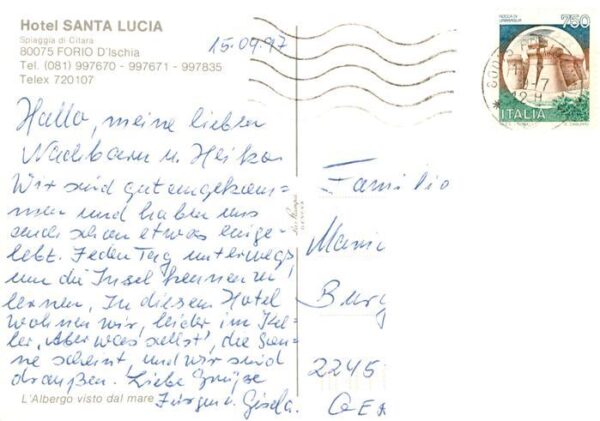 Hotel SANTA LUCIA
Spiaggia di Citara
80075 FORIO D'Ischia
Tel. (081) 997670 - 997671 - 997835
Telex 720107
15.09.97
750
ITALIA
Hallo, meine lieben
Nachbarn u. Heiko
Wir sind gut angekom=
men und haben uns
auch schon etwas einge=
lebt. Jeden Tag unterwegs
um die Insel kennen zu
lernen. In diesem Hotel
wohnen wir, leider im Kel=
ler, Aber was solls!, die Son=
ne scheint und wir sind
draußen. Liebe Grüße
Jürgen u. Gisela.
L'Albergo visto dal mare
Familie
Burg
2245
GER